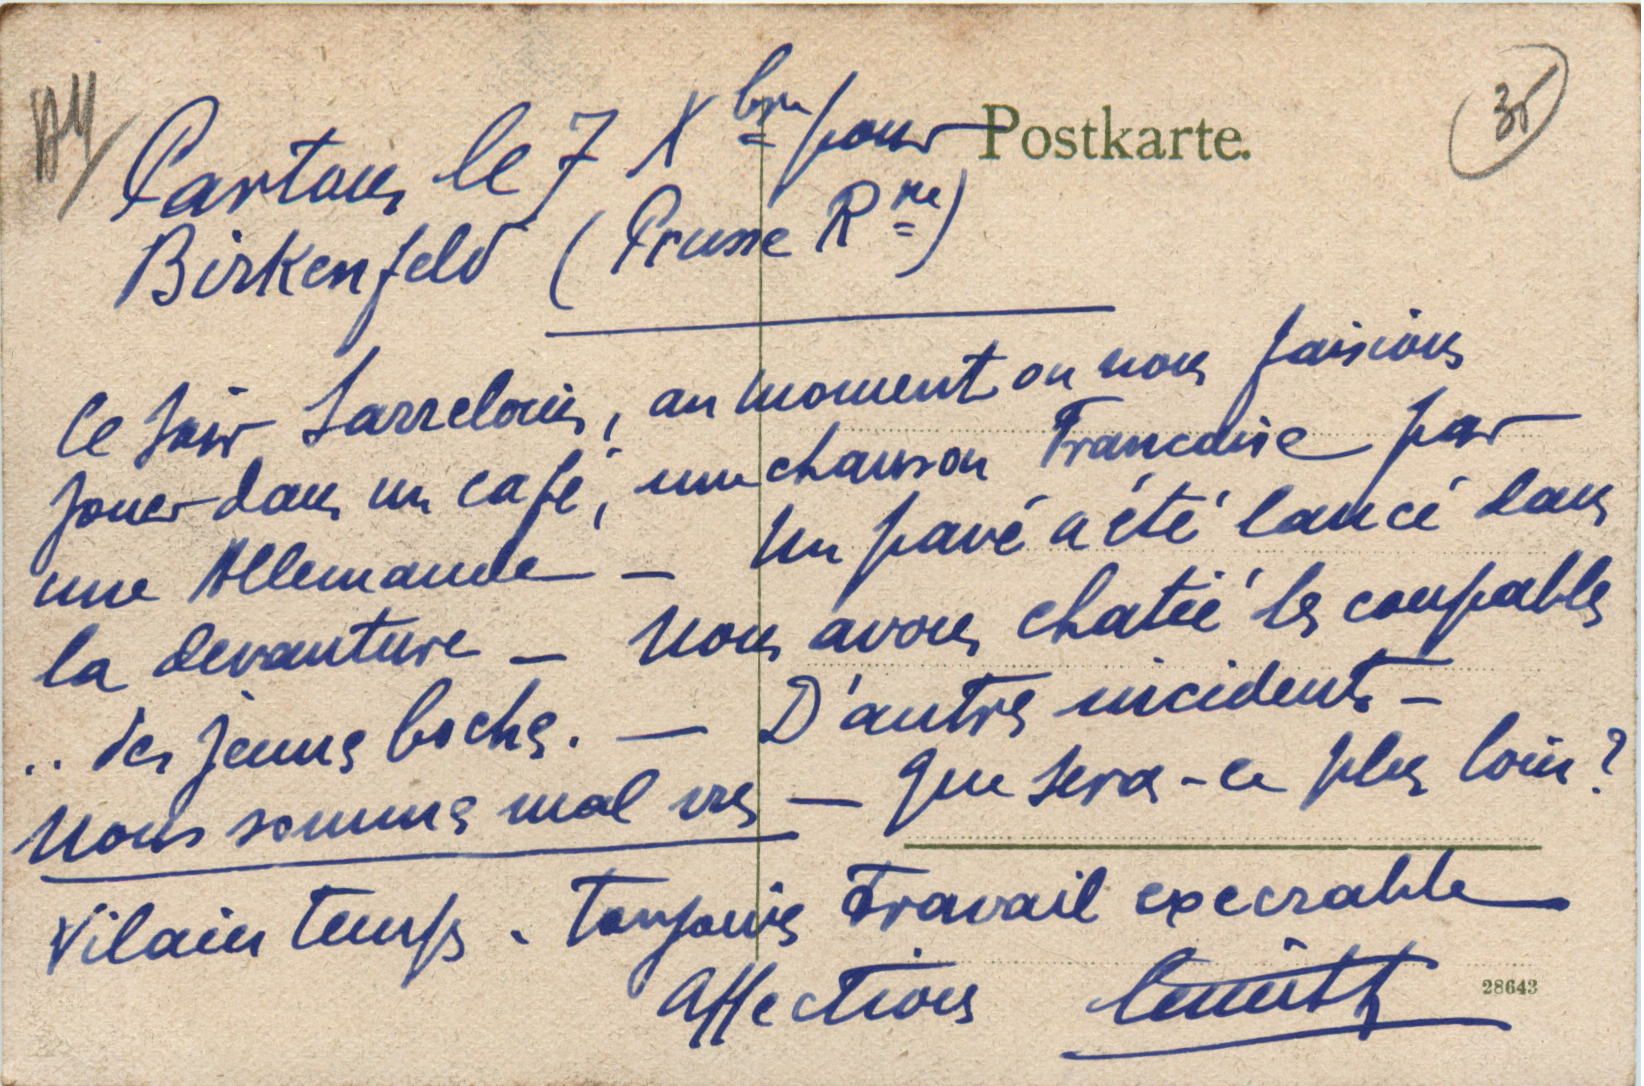 Partons le 7 Xbre pour
Postkarte.
35
Birkenfeld (Prusse Rne)
Ce soir Sarrelouis, au moment ou nous faisions
jouer dans un café, une chanson Francaise par
une Allemande — Un pavé a été lancé dans
la devanture — Nous avons chatié les coupables
.. des jeunes boches. — D'autres incidents —
Nous sommes mal vus — Que sera-ce plus loin?
Vilain temps. Toujours Travail execrable
Affections
28643